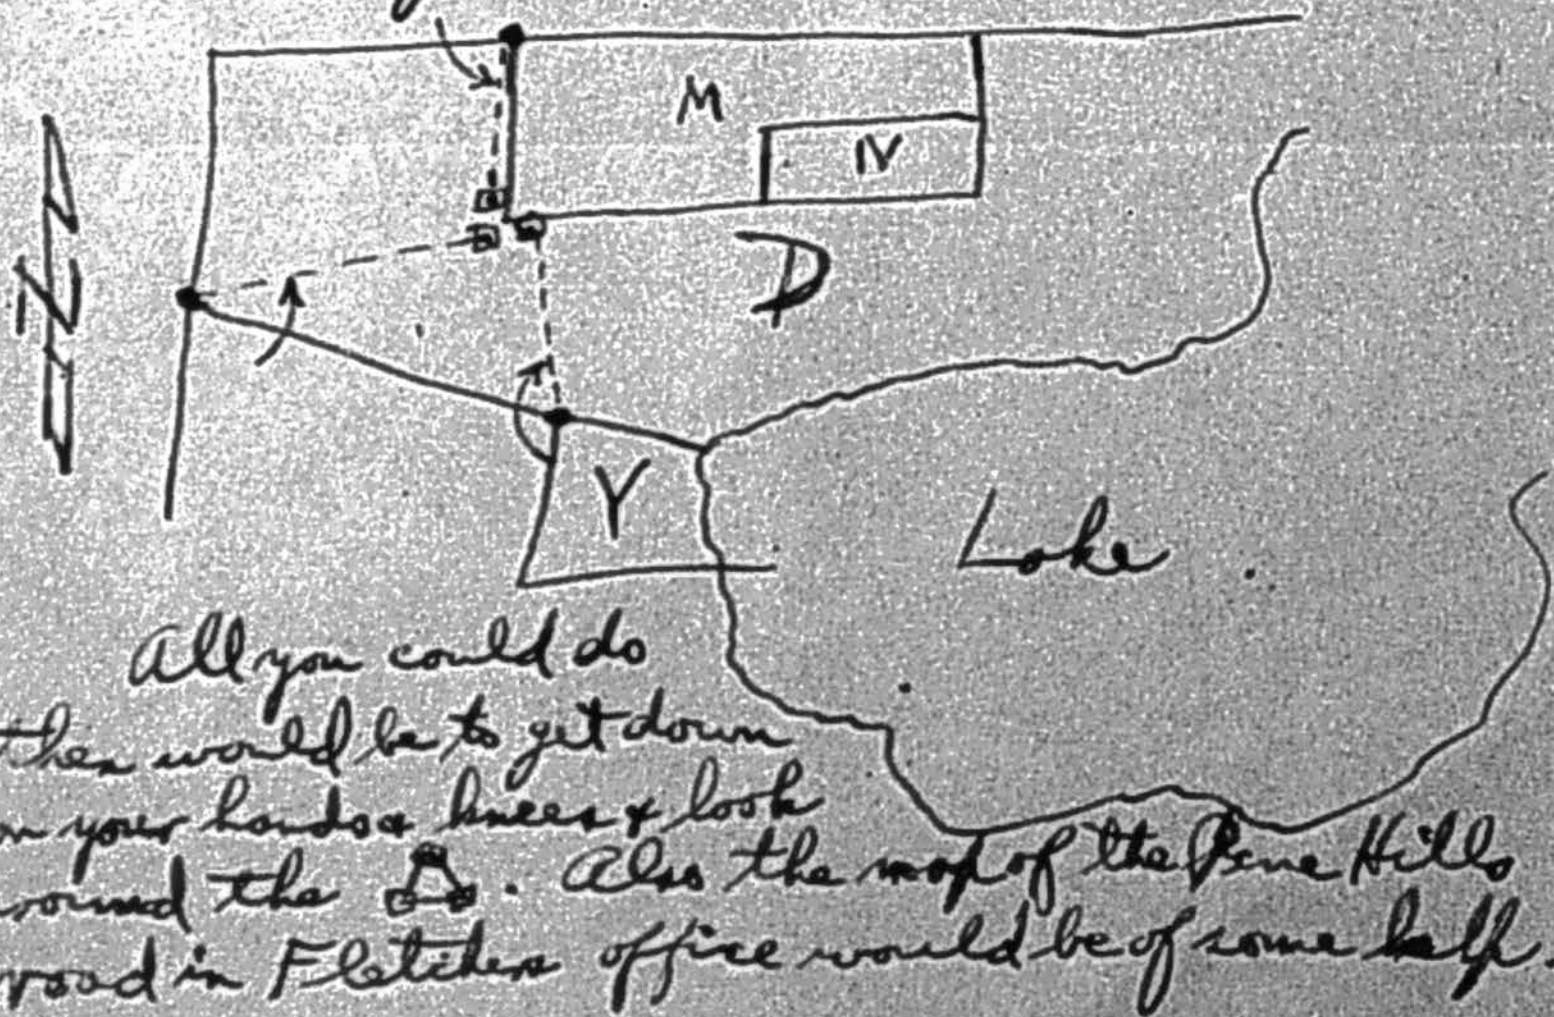 M
IV
N
D
Y
Lake
All you could do
then would be to get down
on your hands & knees & look
around the . Also the map of the Pine Hills
road in Fletchers office would be of some help.